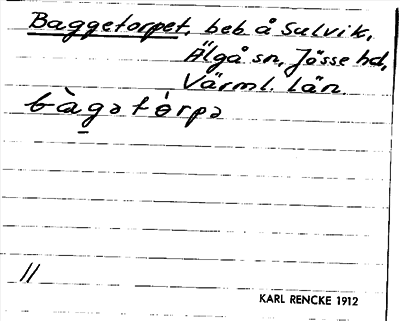 Baggetorpet, beb. å Sulvik,
Älgå sn, Jösse hd,
Värml. län.
bàgətórpə
11
KARL RENCKE 1912